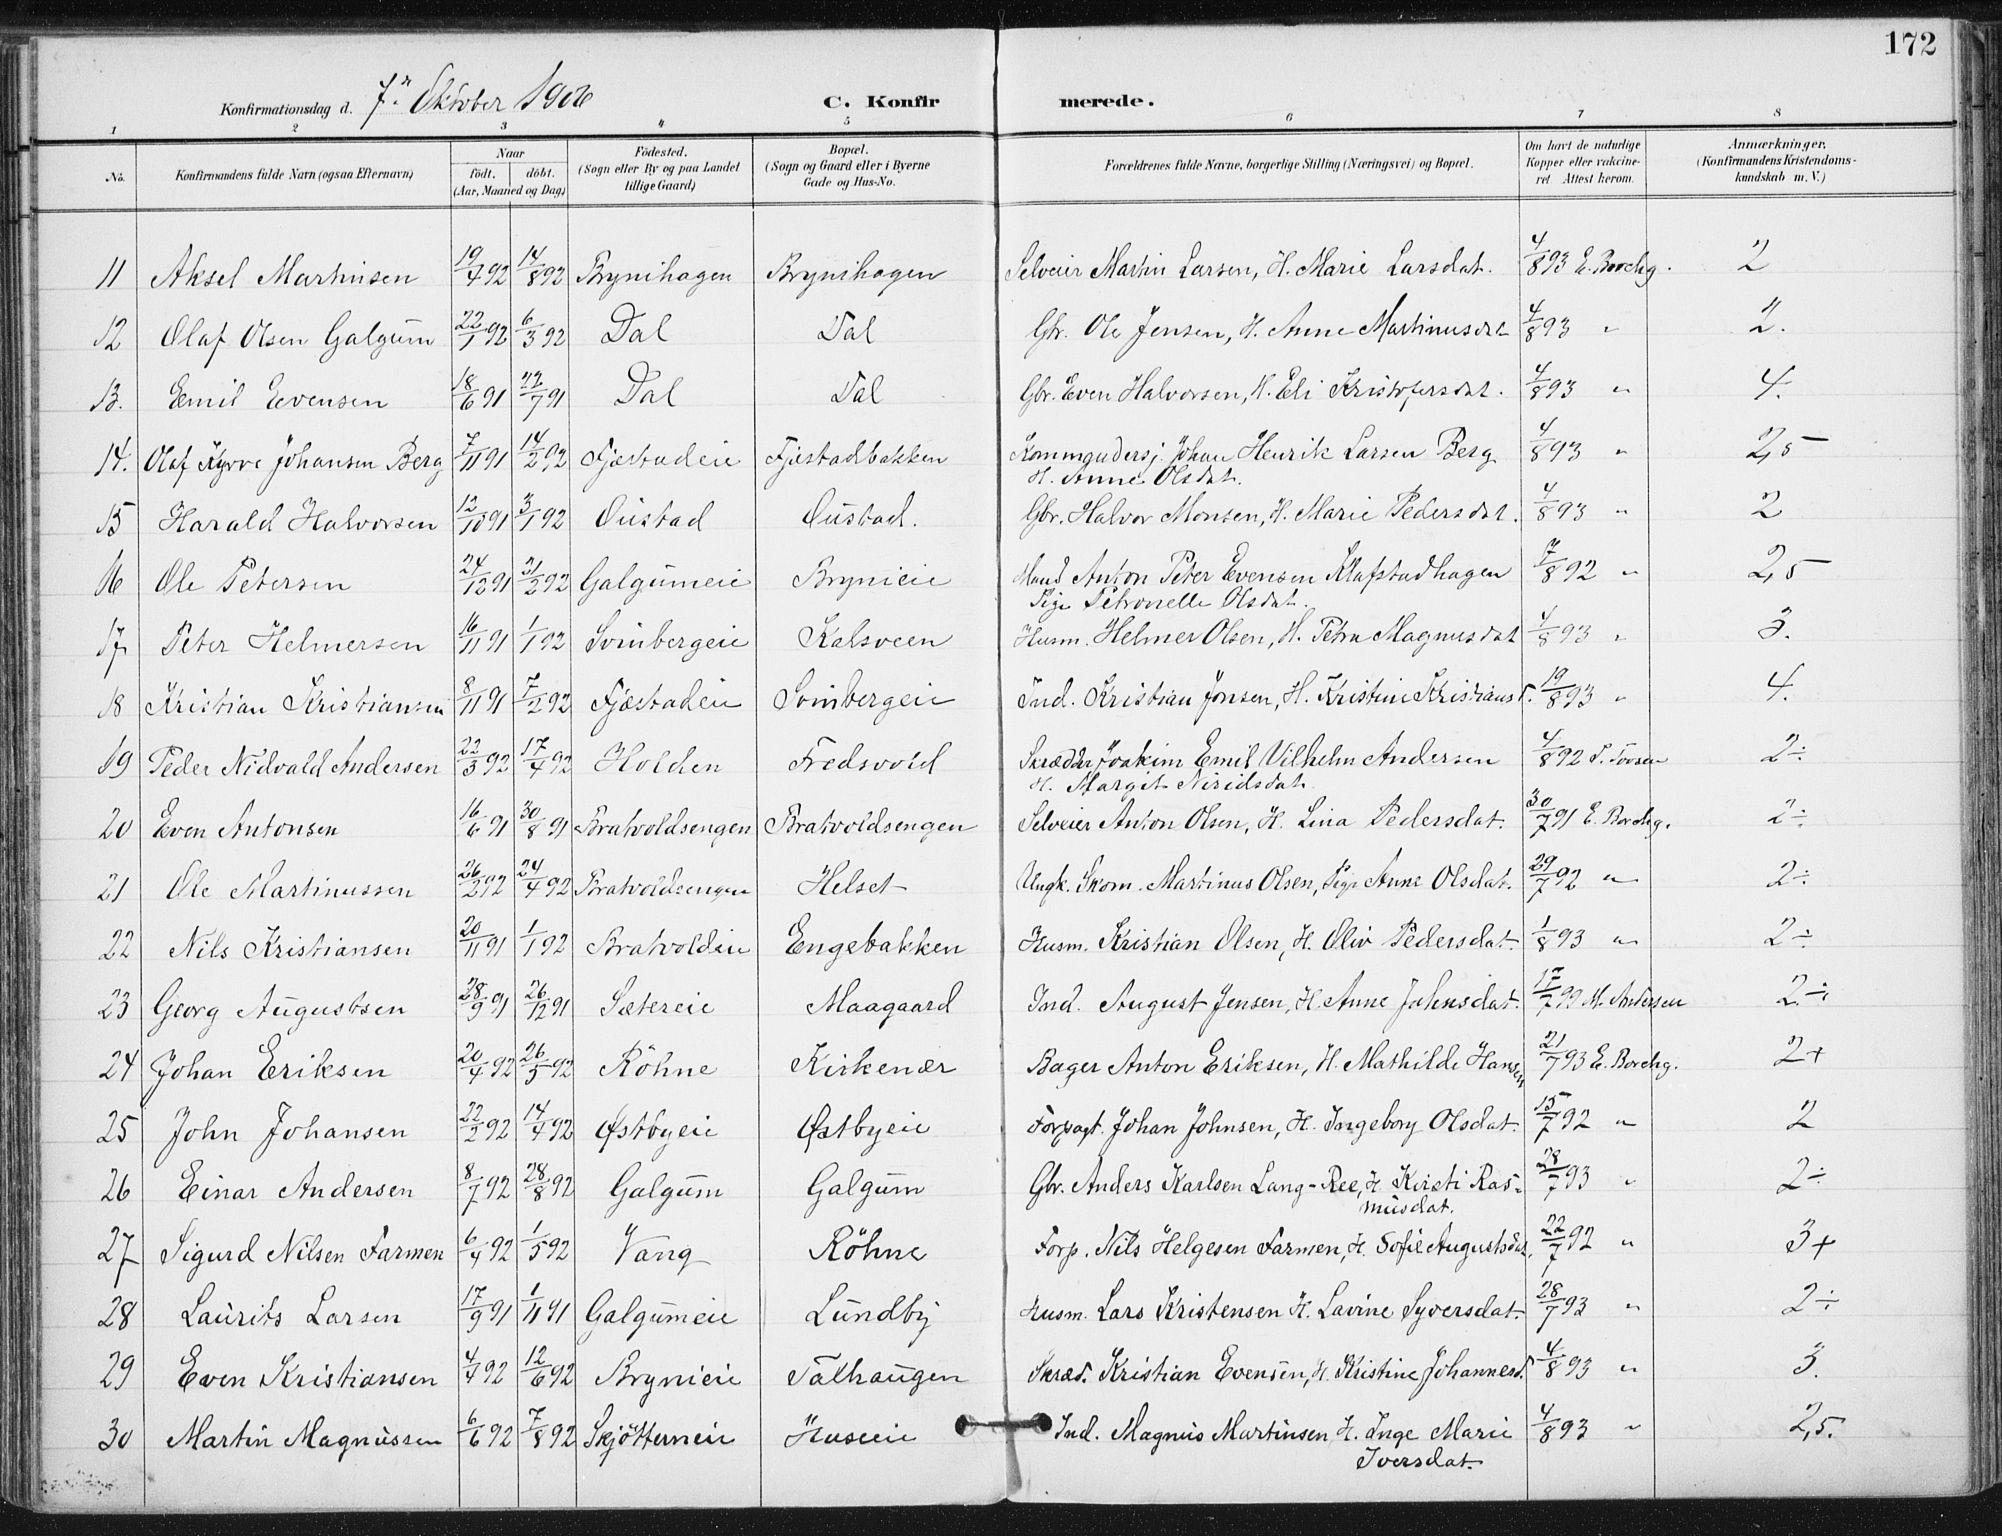 172
Konfirmationsdag d. 7de Oktober 1906 C. Konfirmerede.
1 2 3 4 5 6 7 8
No. Konfirmandens fulde Navn (ogsaa Efternavn) Naar født. døbt. (Aar, Maaned og Dag) Fødested. (Sogn eller By og paa Landet tillige Gaard) Bopæl. (Sogn og Gaard eller i Byerne Gade og Hus-No. Forældrenes fulde Navne, borgerlige Stilling (Næringsvei) og Bopæl. Om havt de naturlige Kopper eller vakcineret. Attest herom. Anmærkninger, (Konfirmandens Kristendomskundskab m. V.)
11 Aksel Martinsen 19/7 92 14/8 92 Brynihagen Brynihagen Selveier Martin Larsen, H. Marie Larsdat. 4/8 93 E. Borchg. 2
12 Olaf Olsen Galgum 22/1 92 6/3 92 Dal Dal Gbr. Ole Jensen, H. Anne Martinusdat 4/8 93 " 2.
13. Emil Evensen 18/6 91 22/7 91 Dal Dal Gbr. Even Halvorsen, H. Eli Kristofersdat. 4/8 93 " 4.
14. Olaf Kyrre Johansen Berg 7/11 91 14/2 92 Fjæstadeie Fjæstadbakken Johan Henrik Larsen Berg 4/8 93 " 2,5
H. Anne Olsdat.
15 Harald Halvorsen 12/10 91 3/1 92 Oustad Oustad. Gbr. Halvor Monsen, H. Marie Pedersdat. 4/8 93 " 2
16 Ole Petersen 24/12 91 21/2 92 Galgumeie Brynieie Anton Peter Evensen Klafstadhagen 7/8 92 " 2,5
Pige Petronelle Olsdat.
17 Peter Helmersen 16/11 91 1/1 92 Svinbergeie Kalsveen Husm. Helmer Olsen, H. Petra Magnusdat 4/8 93 " 3.
18 Kristian Kristiansen 8/11 91 7/2 92 Fjæstadeie Svinbergeie Ind. Kristian Jonsen, H. Kristine Kristiansd. 19/8 93 " 4.
19 Peder Nidvald Andersen 22/3 92 17/4 92 Holden Fredsvold Skrædder Joakim Emil Vilhelm Andersen 4/8 92 2÷
H. Margit
20 Even Antonsen 16/6 91 30/8 91 Bratvoldsengen Bratvoldsengen Selveier Anton Olsen, H. Lina Pedersdat. 30/7 91 E. Borchg. 2÷
21 Ole Martinussen 26/2 92 24/4 92 Bratvoldsengen Helset Ungk. Skom. Martinus Olsen, Pige Anne Olsdat. 29/7 92 " 2÷
22 Nils Kristiansen 20/11 91 1/1 92 Bratvoldeie Engebakken Husm. Kristian Olsen, H. Oliv Pedersdat. 1/8 93 " 2÷
23 Georg Augustsen 28/9 91 26/12 91 Sætereie Maagaard Ind. August Jensen, H. Anne Johnsdat. 17/7 99 M. Andersen 2÷
24 Johan Eriksen 20/4 92 26/5 92 Röhne Kirkenær Bager Anton Eriksen, H. Mathilde Hansen 21/7 93 E. Borchg. 2+
25 John Johansen 22/2 92 14/4 92 Østbyeie Østbyeie Forpagt. Johan Johnsen, H. Ingeborg Olsdat. 15/7 92 " 2
26 Einar Andersen 8/7 92 28/8 92 Galgum Galgum Gbr. Anders Karlsen Lang-Ree, H. Kirsti Ras- 28/7 93 " 2÷
musdat.
27 Sigurd Nilsen Farmen 6/4 92 1/5 92 Vang Röhne Forp. Nils Helgesen Farmen, H. Sofie Augustsdat. 22/7 92 " 3+
28 Laurits Larsen 17/9 91 1/11 91 Galgumeie Lundby Husm. Lars Kristensen H. Lavine Syversdat. 28/7 93 " 2÷
29 Even Kristiansen 4/4 92 12/6 92 Brynieie Talhaugen Skræd. Kristian Evensen, H. Kristine Johannesd. 4/8 93 " 3.
30 Martin Magnussen 6/6 92 7/8 92 Skjötterneie Huseeie Ind. Magnus Martinsen H. Inge Marie 4/8 93 " 2,5.
Iversdat.